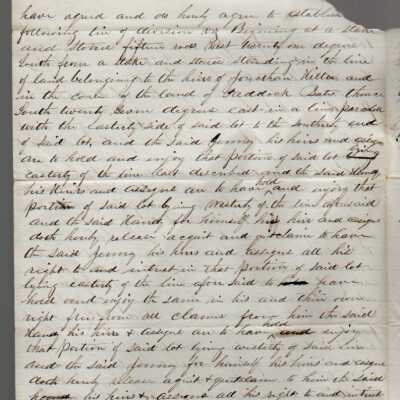 have agreed and do hereby agree to establish
following line of division viz Beginning at a stake
and stones fifteen rods West twenty one degrees
South from a stake and stones standing in the line
of land belonging to the heirs of Jonathan
and
in the corner of the land of Bates thence
South twenty seven degrees east in a line parallel
with the easterly side of said lot to the southerly end
of said lot, and the said Jenny his heirs and assigns
are to hold and enjoy that portion of said lot lying
easterly of the line last described and the said
his heirs and assigns are to have hold and enjoy that
portion of said lot lying westerly of the line aforesaid
and the said for himself his heirs and assigns
doth hereby release acquit and quitclaim to have
the said Jenny his heirs and assigns all his
right to and interest in that portion of said lot
lying easterly of the line aforesaid to have
hold and enjoy the same in his and their own
right free from all claims from him the said
his heirs & assigns are to have hold and enjoy
that portion of said lot lying westerly of said line
and the said Jenny for himself his heirs and assigns
doth hereby release acquit & quitclaim to him the said
his heirs & assigns all his right to and interest